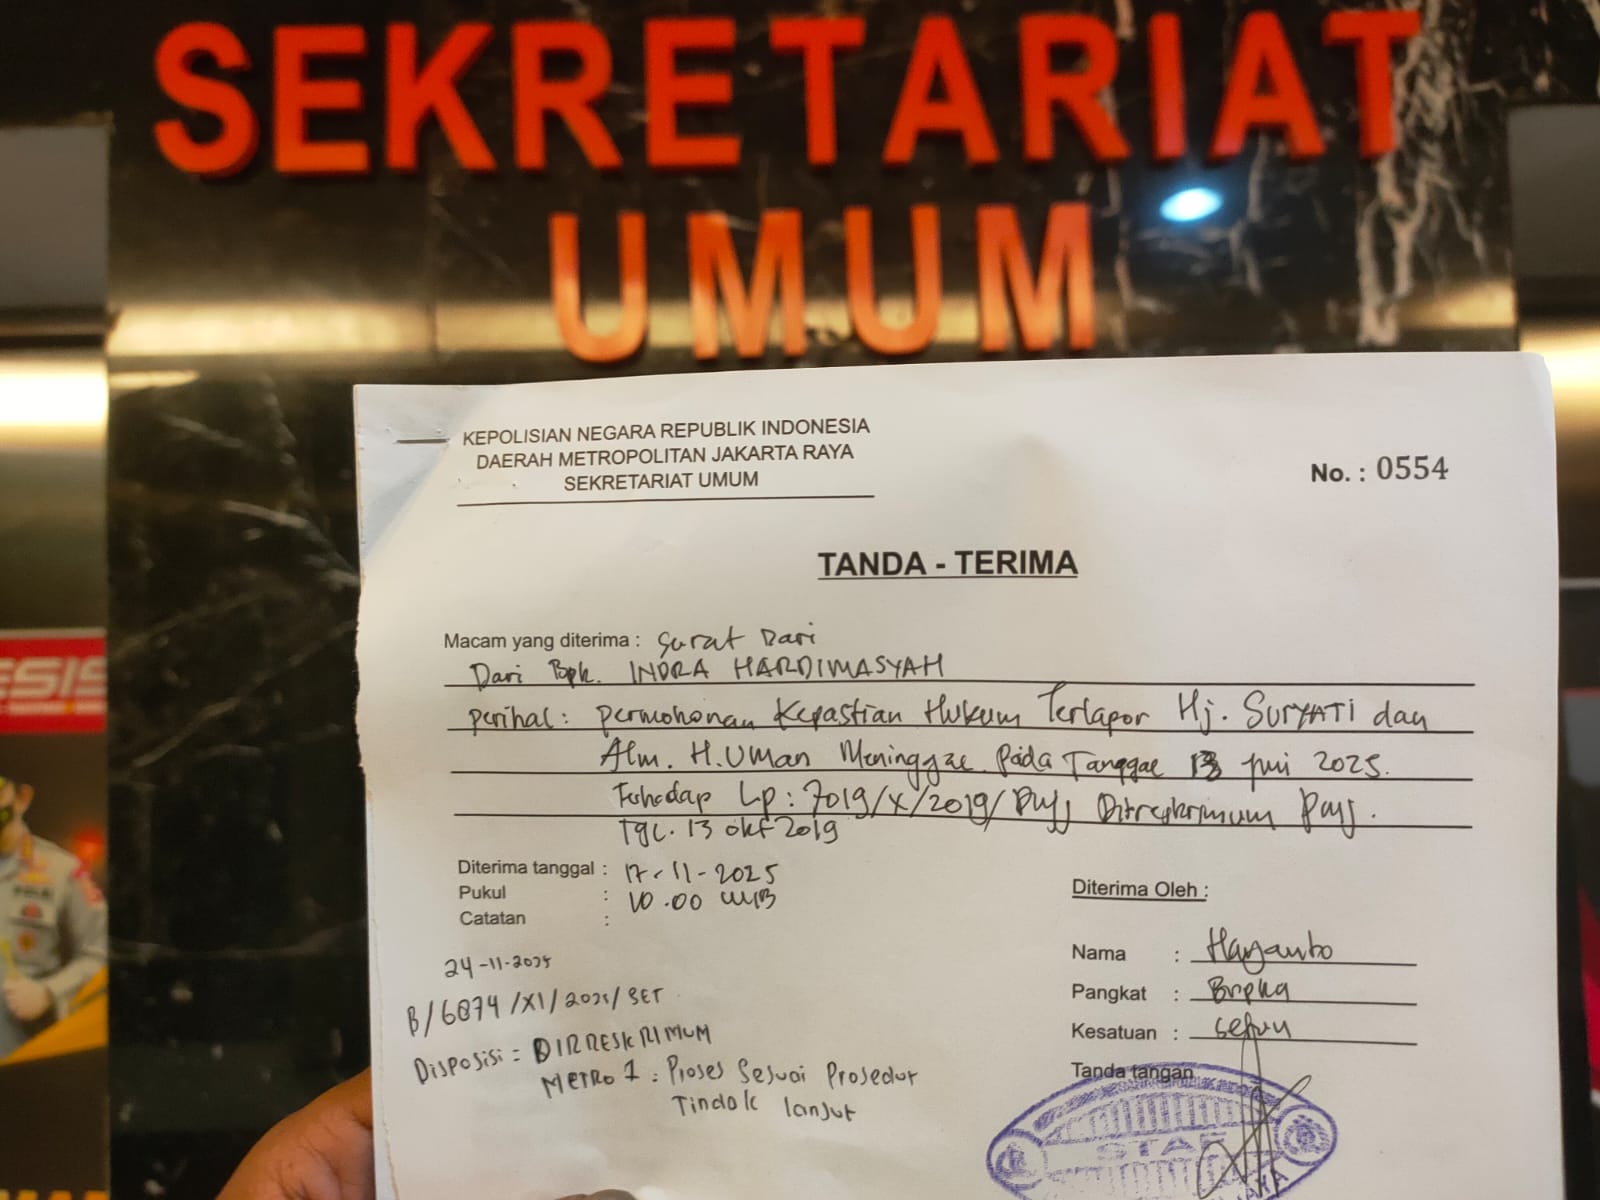 SEKRETARIAT
UMUM
KEPOLISIAN NEGARA REPUBLIK INDONESIA
DAERAH METROPOLITAN JAKARTA RAYA
SEKRETARIAT UMUM
No. : 0554
TANDA - TERIMA
Macam yang diterima : Surat Dari
Dari Bpk. INDRA HARDIMASYAH
perihal : permohonan Kepastian Hukum Terlapor Hj. SURYATI dan
Alm. H. UMAN Meninggal Pada Tanggal 13 Juni 2025.
Terhadap Lp : 7019/X/2019/PMJ Ditreskrimum PMJ.
Tgl. 13 okt 2019
Diterima tanggal : 17-11-2025
Pukul : 10.00 WIB
Catatan :
24-11-2025
B/6874/XI/2025/SET
Disposisi = DIRRESKRIMUM
METRO 1 : Proses Sesuai Prosedur
Tindak lanjut
Diterima Oleh :
Nama : Haryanto
Pangkat : Bripka
Kesatuan : Setum
Tanda tangan
STAF
ESIS